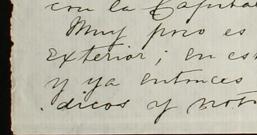 con la Capital
Muy poco es
exterior; en es
y ya entonces
dicos y not